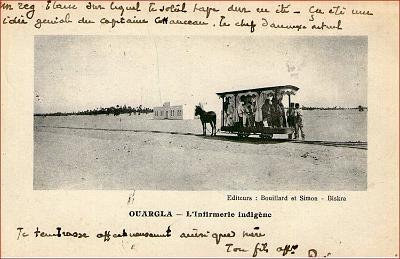 un reg blanc sur lequel le soleil tape dur en été - Ça été une
idée géniale du capitaine le chef d'annexe actuel
Editeurs : Bouillard et Simon - Biskra
OUARGLA – L'Infirmerie indigène
Je t'embrasse affectueusement ainsi que mère
Ton fils aff